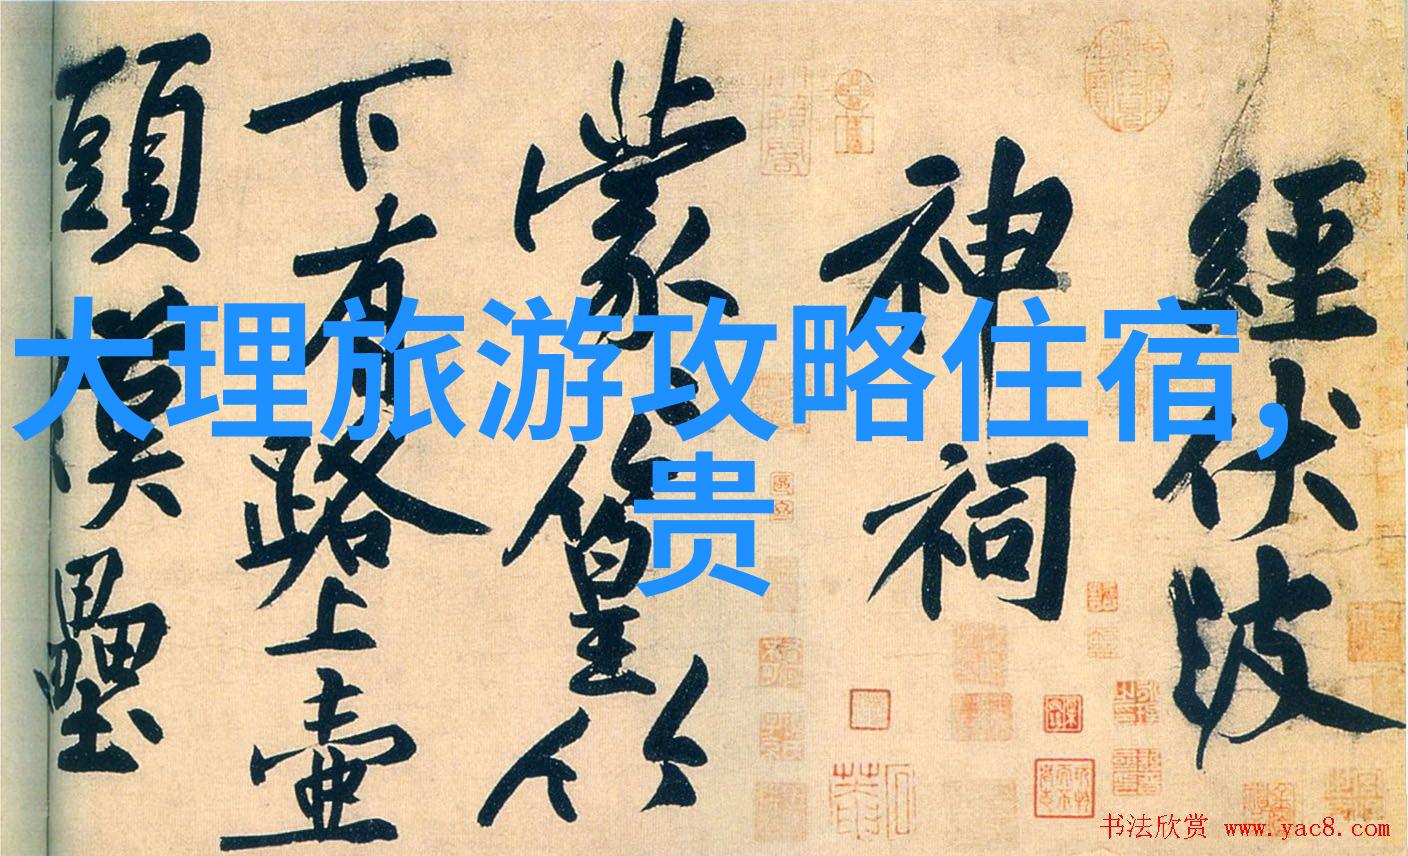 大理旅游攻略住宿,
贵
經伏波
神祠
蒙〻篁竹
下有路上壺
頭漢壘
书法欣赏 www.yac8.com